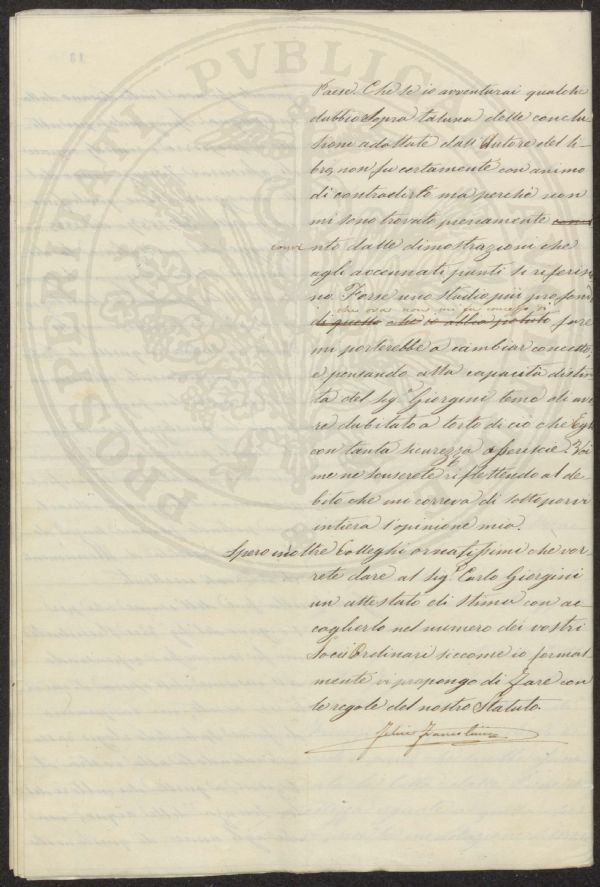 Paese. Che se io avventurai qualche
dubbio sopra taluna delle conclu-
sioni adottate dall'Autore del li-
bro, non fu certamente con animo
di contradirlo ma perchè non
mi sono trovato pienamente
convinto dalle dimostrazioni che
agli accennati punti si riferisco-
no. Forse uno studio più profondo
che ora non mi fu concesso di
di questo che io abbia potuto fare
mi porterebbe a cambiar concetto,
e pensando alla capacità distin-
ta del Sig.r Giorgini temo di ave-
re dubitato a torto di ciò che Egli
con tanta sicurezza asserisce. Voi
me ne scuserete riflettendo al de-
bito che mi correva di sottoporvi
intiera l'opinione mia.
Spero inoltre Colleghi ornatissimi che vor-
rete dare al Sig.r Carlo Giorgini
un attestato di stima con ac-
coglierlo nel numero dei vostri
Socii Ordinari siccome io formal-
mente vi propongo di fare con
le regole del nostro Statuto.
Felice Francolini
PROSPERITATI PVBLICAE
13